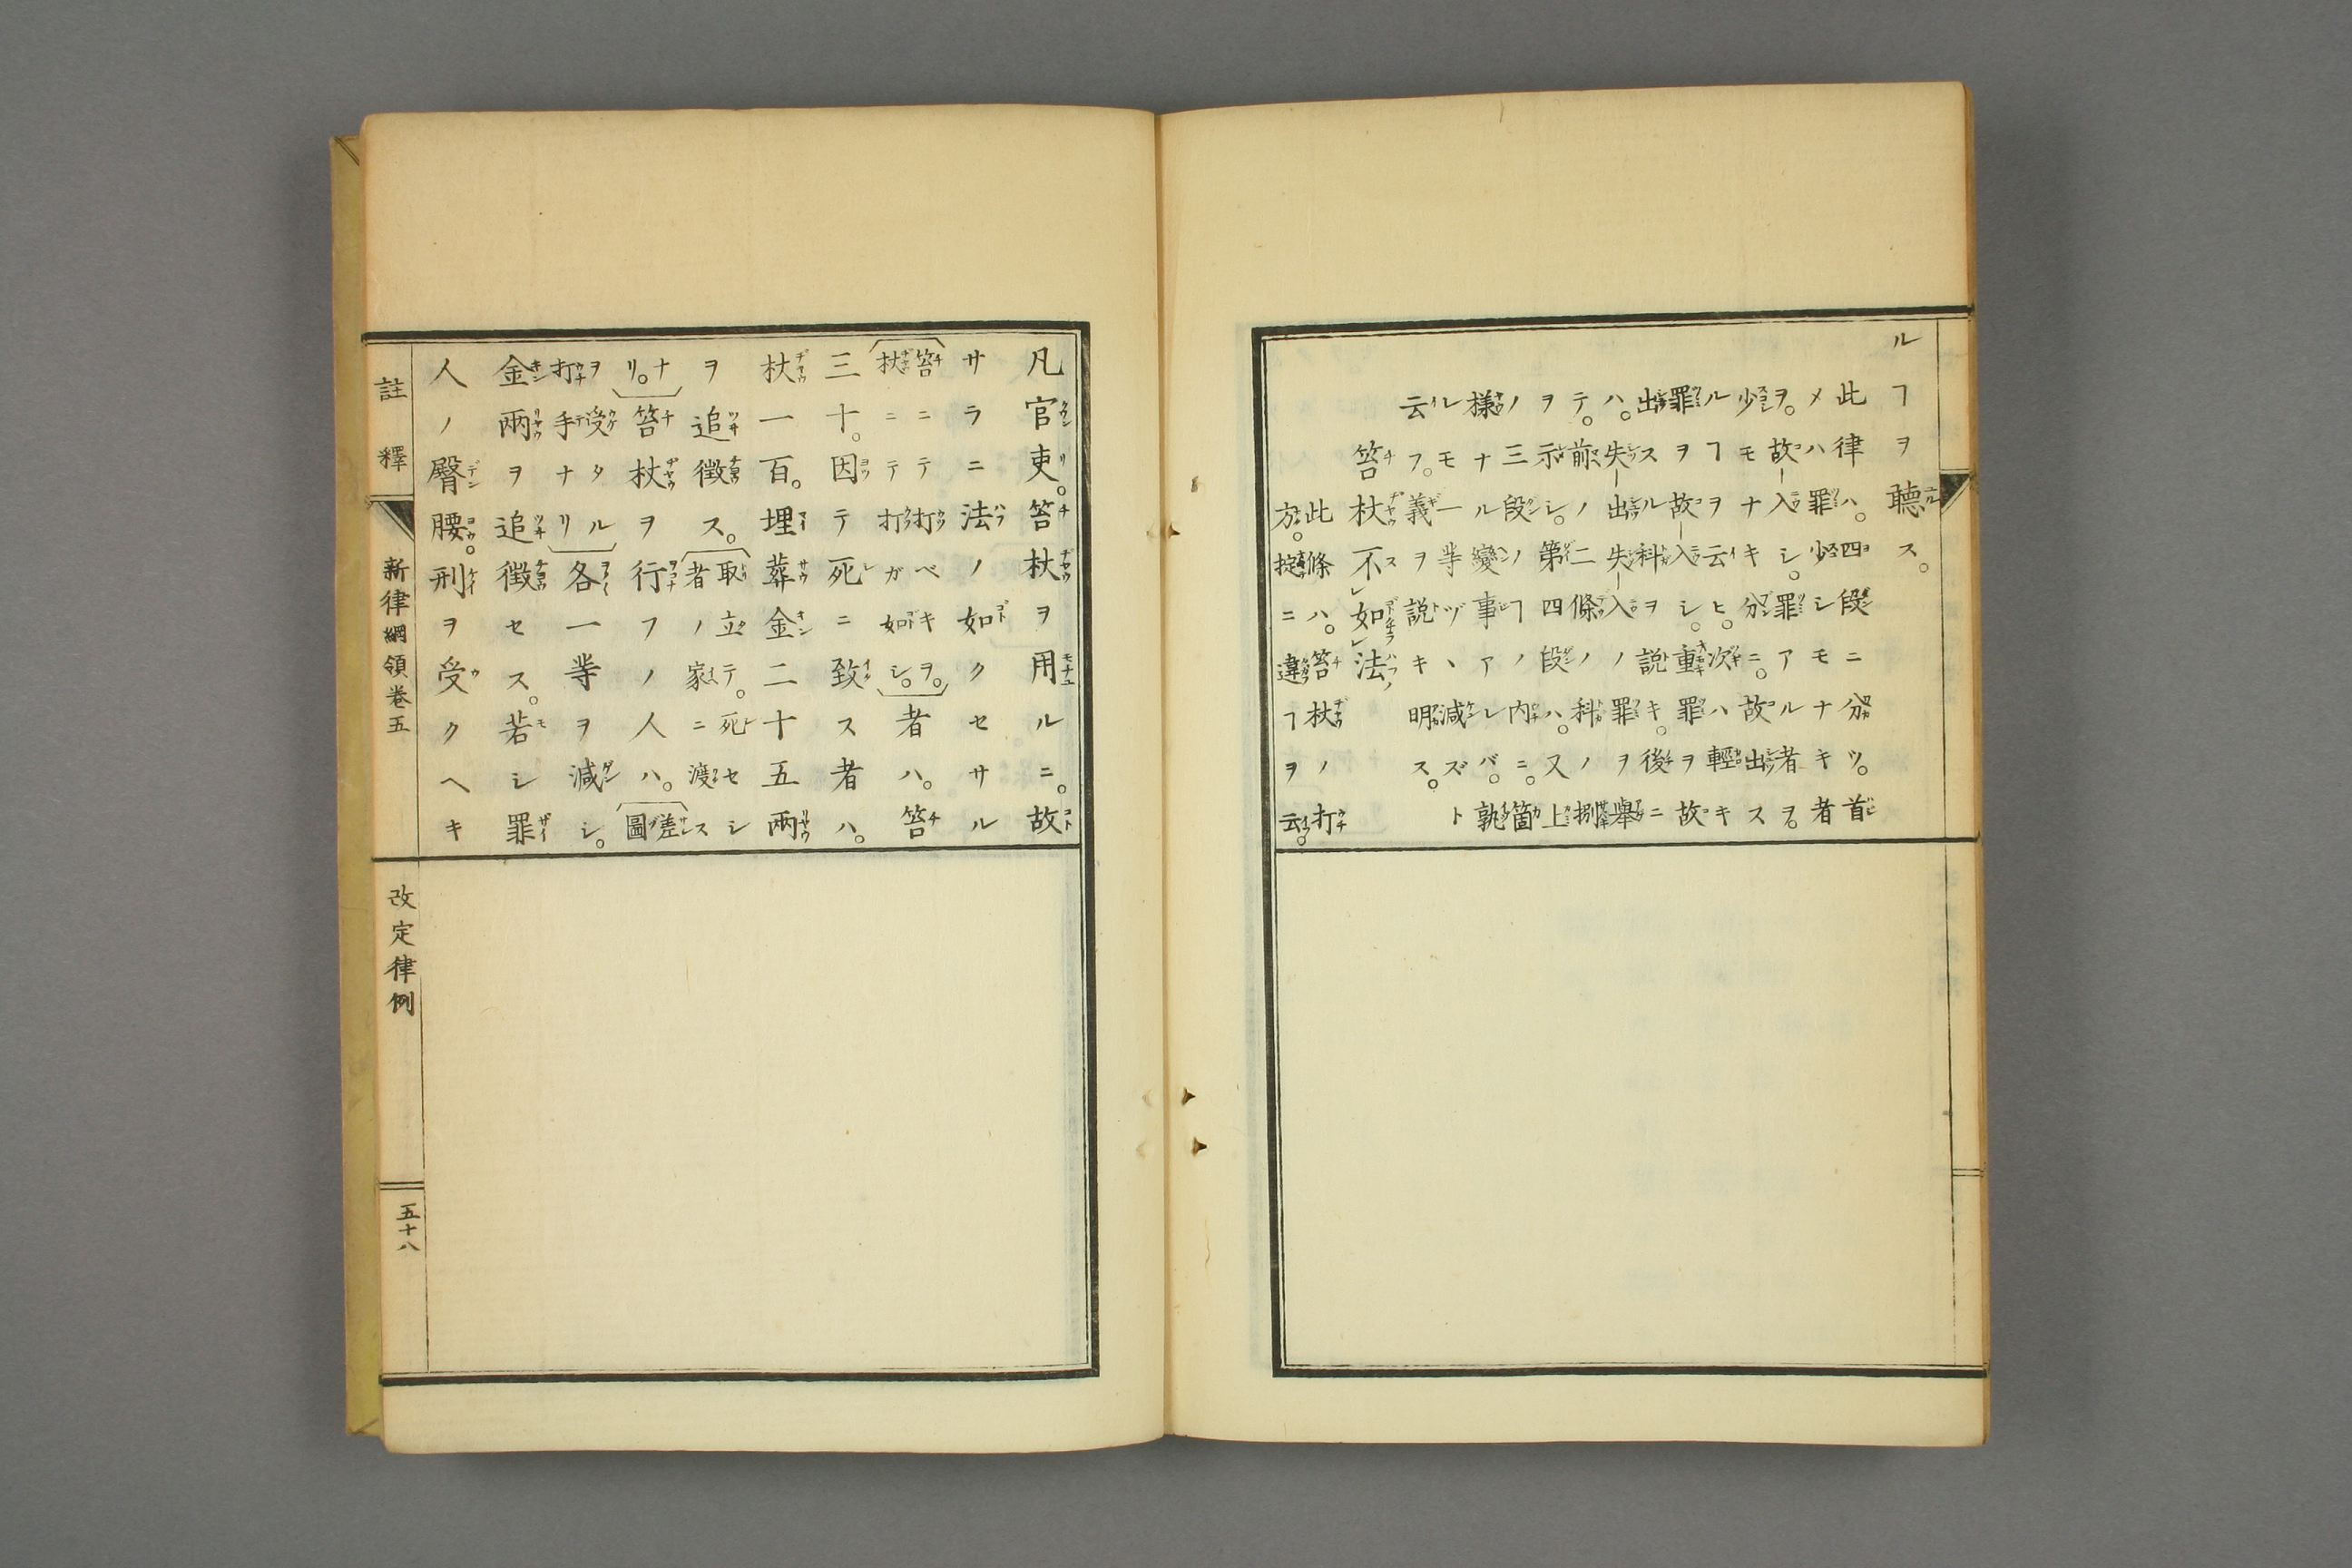 ルヿヲ聽ス。
此律ハ。四段ニ分ツ。首
メハ罪少シモナキ者
ヲ。故入シ。罪アル者ヲ。
少モナキ分ニ。故出ス
ルヿヲ云ヒ。次ハ輕キ
罪ヲ故入シ。重罪ヲ故
出スル科ヲ説キ。後ニ
ハ。失出失入ノ罪ヲ擧
テ。前ノ二條ノ科ノ捌
ヲ示シ。第四段ハ。又上
ノ三段ノヿノ内ニ。箇
様ナル變事アレバ。孰
ルモ一等ヅヽ減ズト
云フ。義ヲ説キ明ス。
笞杖不レ如レ法
此條ハ。笞杖ノ打
方。掟ニ違ヿヲ云。
凡官吏。笞杖ヲ用ルニ。故
サラニ法ノ如クセサル
笞ニテ打ベキヲ。杖ニテ打ガ如シ。者ハ。笞
三十。因テ死ニ致ス者ハ。
杖一百。埋葬金二十五兩
ヲ追徴ス。取立テ。死セシ者ノ家ニ渡ス
ナリ。笞杖ヲ行フノ人ハ。差圖
ヲ受タル打手ナリ各一等ヲ減シ。
金兩ヲ追徴セス。若シ罪
人ノ臀腰。刑ヲ受クヘキ
註釋
新律綱領卷五
改定律例
五十八